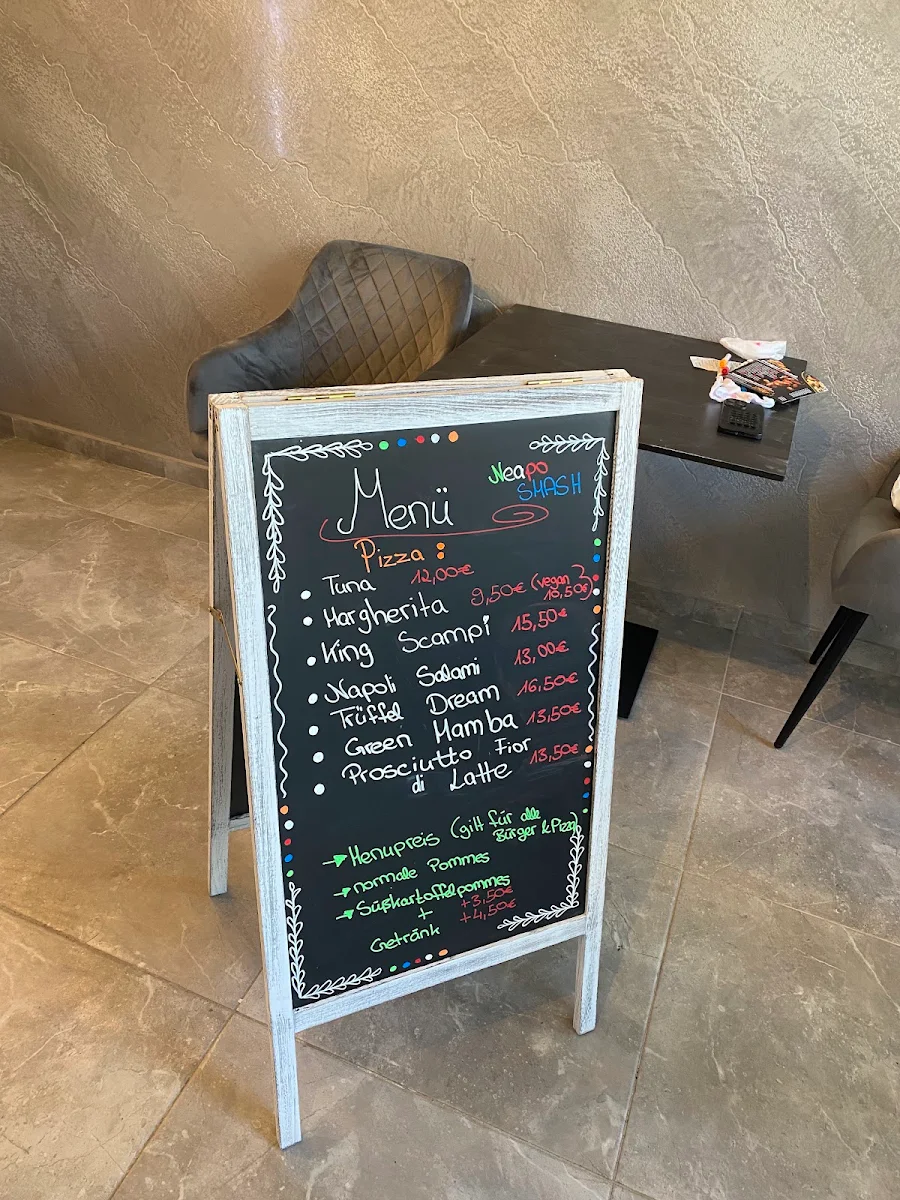 Menü
Neapo
SMASH
Pizza :
• Tuna 12,00€
• Margherita 9,50€ (vegan 10,50€)
• King Scampi 15,50€
• Napoli Salami 13,00€
• Trüffel Dream 16,50€
• Green Mamba 13,50€
• Prosciutto Fior 13,50€
di Latte
→ Menupreis (gilt für alle
Bürger & Pizza)
→ normale Pommes
→ Süßkartoffelpommes
+3,50€
+ +4,50€
Getränk